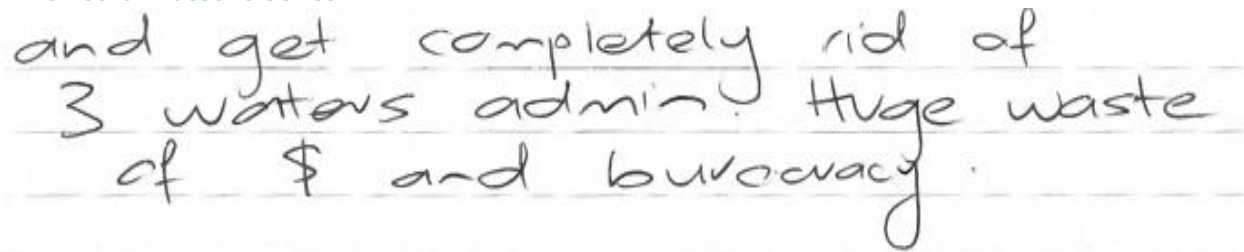 and get completely rid of
3 waters admin. Huge waste
of $ and burocracy.